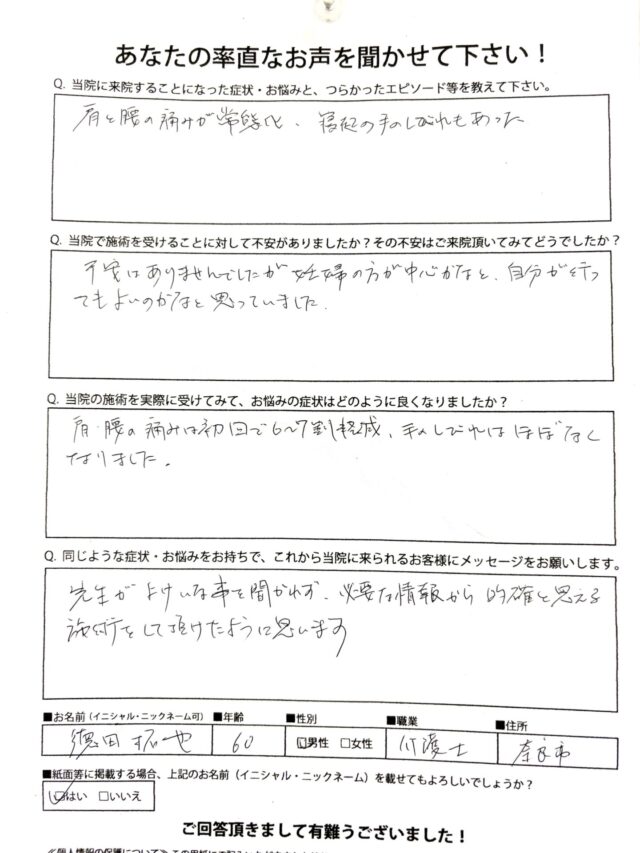 あなたの率直なお声を聞かせて下さい！
Q. 当院に来院することになった症状・お悩みと、つらかったエピソード等を教えて下さい。
肩と腰の痛みが常態化、寝起の手のしびれもあった
Q. 当院で施術を受けることに対して不安がありましたか？その不安はご来院頂いてみてどうでしたか？
不安はありませんでしたが妊婦の方が中心かなと、自分が行っ
てもよいのかなと思っていました.
Q. 当院の施術を実際に受けてみて、お悩みの症状はどのように良くなりましたか？
肩・腰の痛みは初回で6〜7割軽減、手のしびれはほぼなく
なりました。
Q. 同じような症状・お悩みをお持ちで、これから当院に来られるお客様にメッセージをお願いします。
先生がよけいな事を聞かれず、必要な情報から的確と思える
施術をして頂けたように思います
■お名前（イニシャル・ニックネーム可） ■年齢 ■性別 ■職業 ■住所
徳田拓也 60 ☑男性 □女性 介護士 奈良市
■紙面等に掲載する場合、上記のお名前（イニシャル・ニックネーム）を載せてもよろしいでしょうか？
☑はい □いいえ
ご回答頂きまして有難うございました！